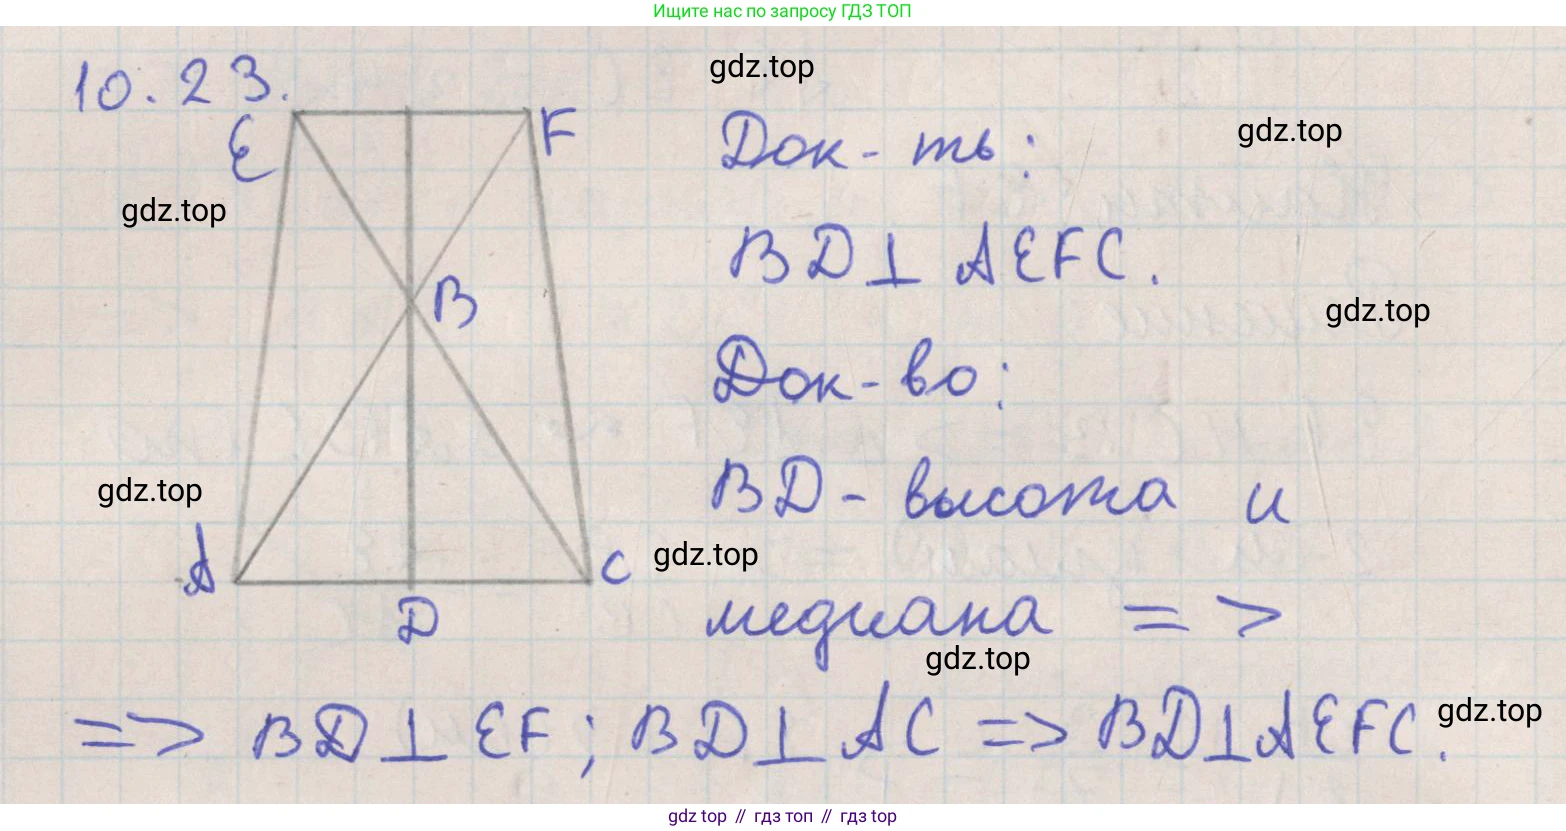 Ищите нас по запросу ГДЗ ТОП
10.23.
gdz.top
E
F
Док-ть:
gdz.top
gdz.top
BD⊥AEFC.
B
gdz.top
Док-во:
gdz.top
BD - высота и
A
C
gdz.top
D
медиана =>
gdz.top
=> BD⊥EF; BD⊥AC => BD⊥AEFC.
gdz.top
gdz top // гдз топ // гдз top